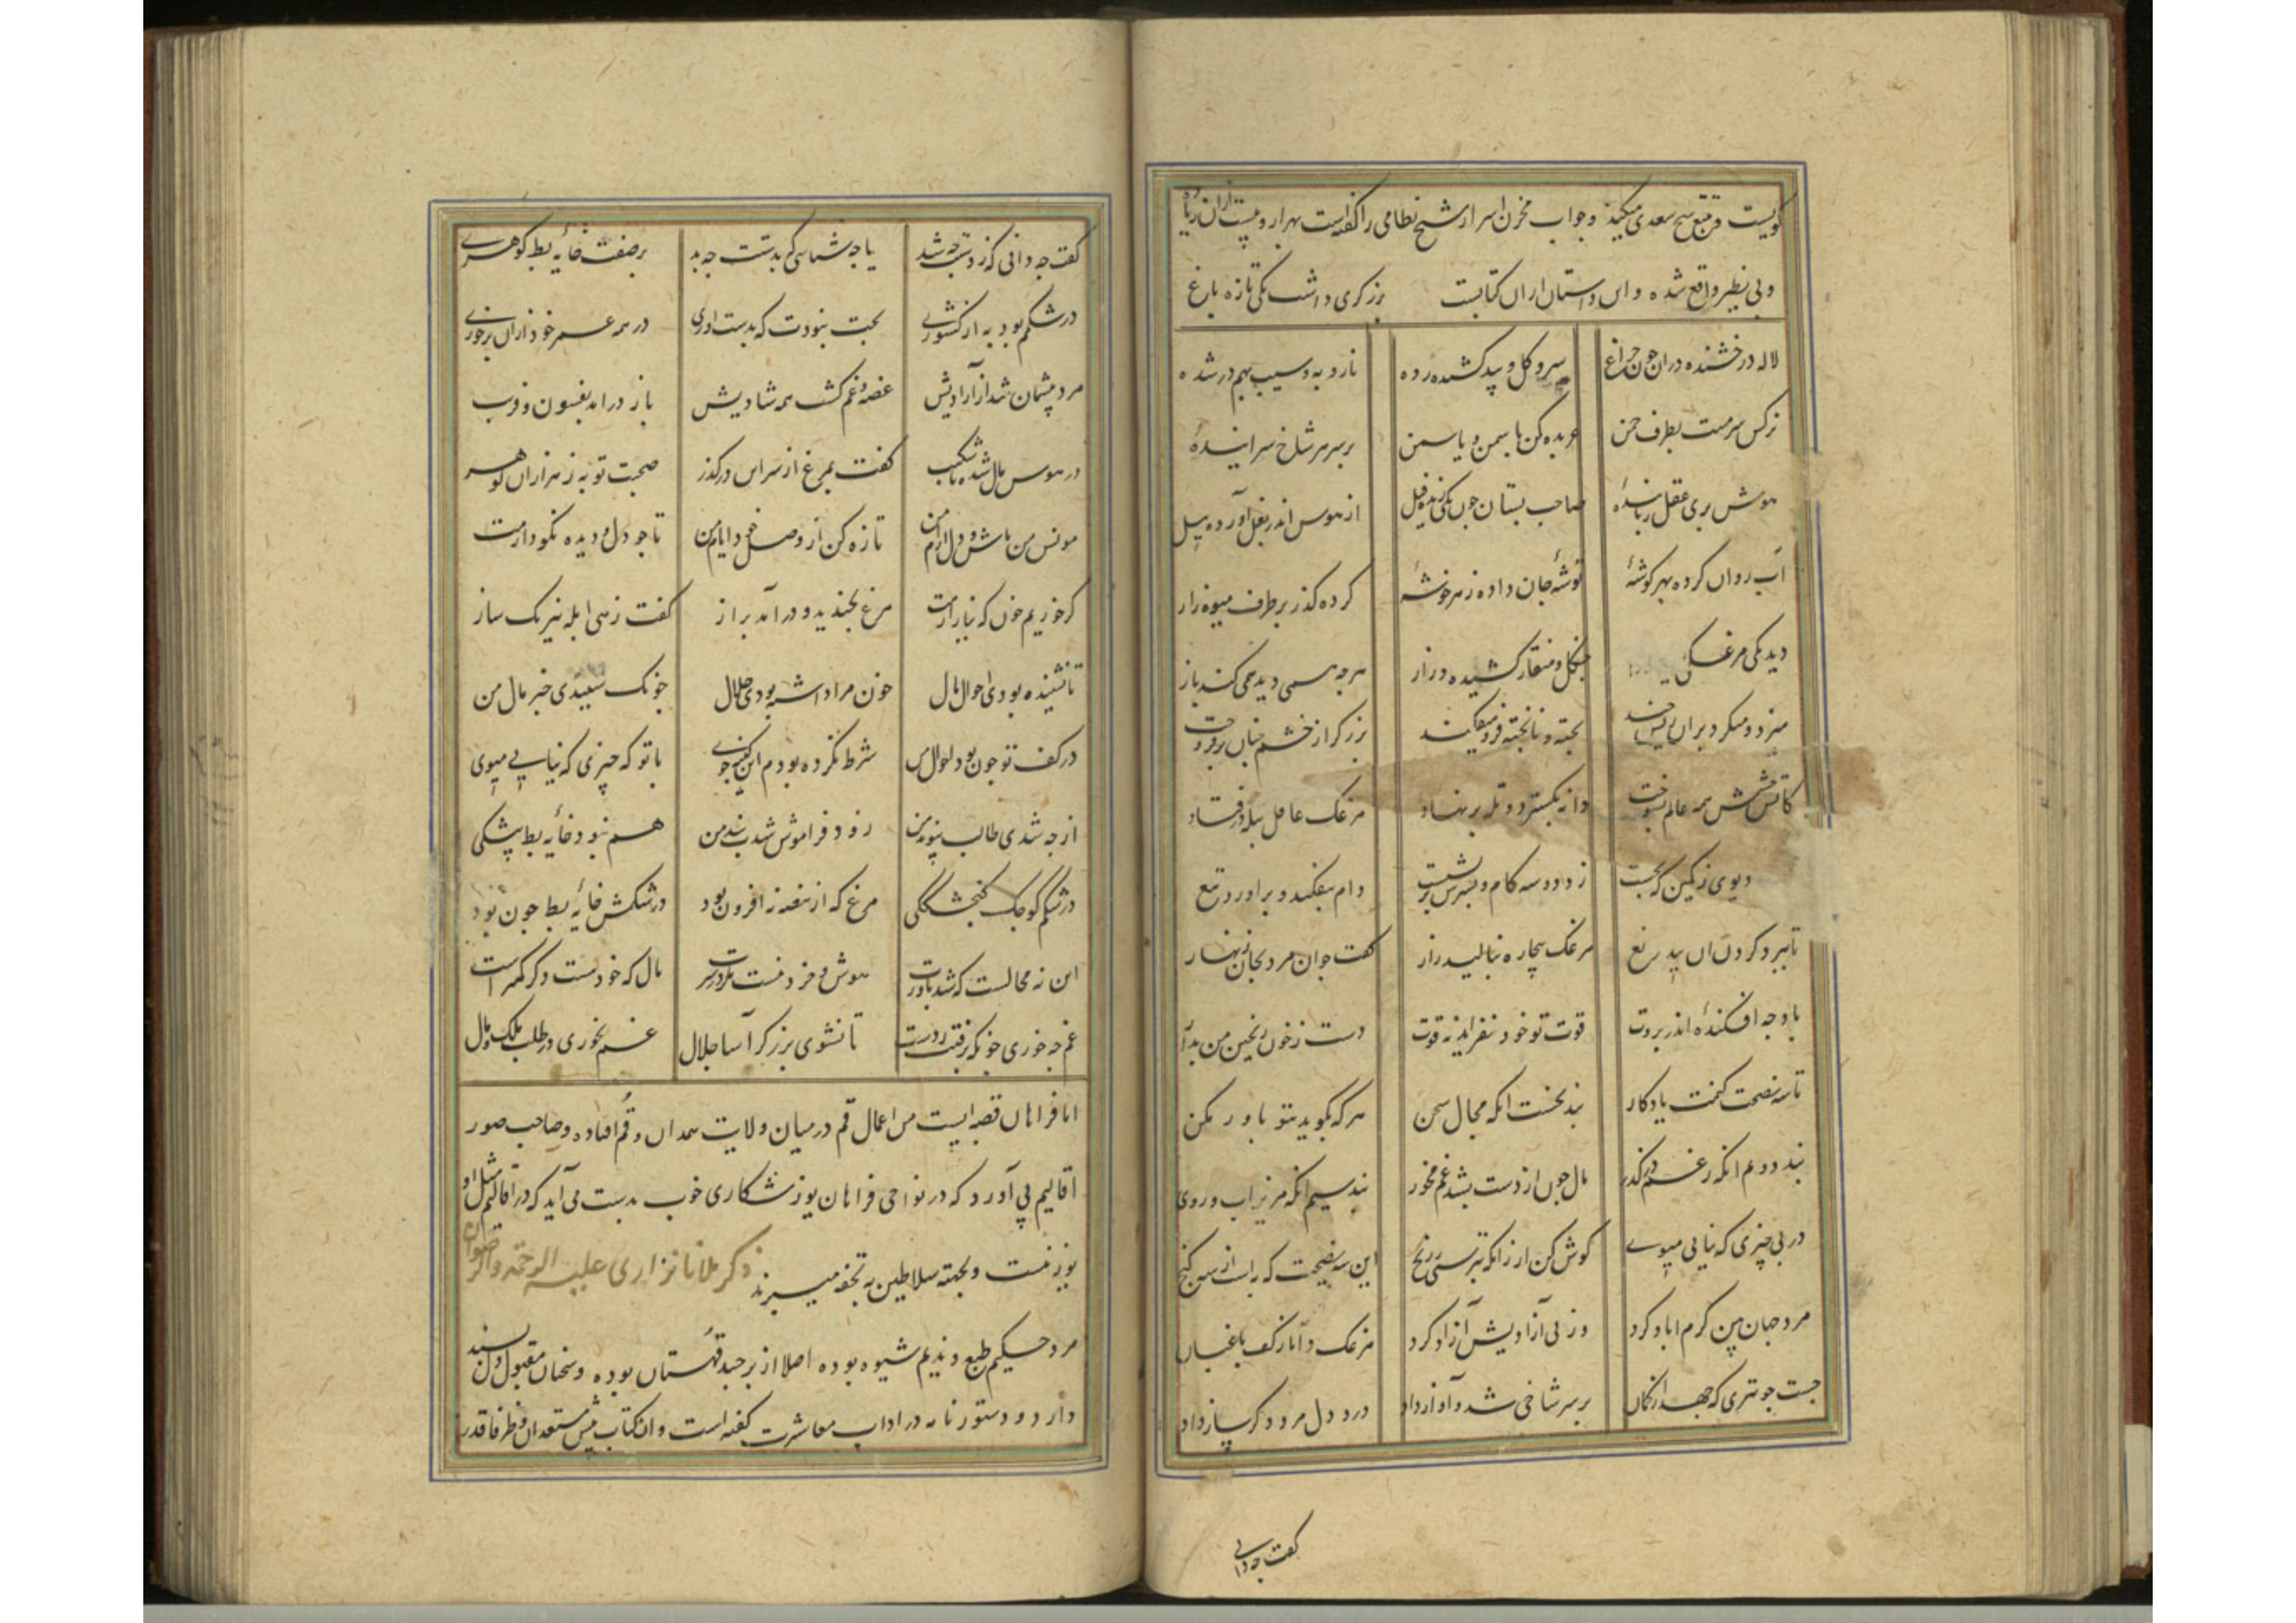 کویست و تتبع شیخ سعدی میکند و جواب مخزن اسرار شیخ نظامی را گفته است
و بی نظیر واقع شده و این داستان ازان کتابست برزکری داشت یکی تازه باغ
لاله درخشنده دران چون چراغ سرو و کل و بید کشیده رده نار و به و سیب بهم در شده
نرکس سرمست بطرف چمن عربده کن با سمن و یاسمن بر سر هر شاخ سراینده
هوش بری عقل رباینده صاحب بستان چون یکی زنده پیل از هوس اندر بغل آورده بیل
آب روان کرده بهر کوشهٔ توشهٔ جان داده ز هر خوشهٔ کرده کذر بر طرف میوه زار
دید یکی مرغک چنکل و منقار کشیده دراز هرچه همی دید همی کند باز
میزد و میکرد بران پخته و ناپخته فرو میفکند برزکر از خشم چنان برفروخت
کاتش خشمش همه عالم بسوخت دانه بکسترد و تله برنهاد مرغک غافل بتله درفتاد
دیوی ز کمین که بجست زد دو سه کام و بسرش برنشست دام بیفکند و برآورد تیغ
تا ببرد کردن آن بی دریغ مرغک بیچاره بنالید زار کفت جوان مرد بجان زینهار
باد چه افکندهٔ اندر بروت قوت تو خود نفزاید ز قوت دست ز خون چنین من بدار
تا سه نصیحت کنمت یادکار پند نخست آنکه محال سخن هر که بکوید بتو باور مکن
پند دوم آنکه ز غم درکذر مال چون از دست بشد غم مخور پند سیم آنکه مریز آب روی
در پی چیزی که نیابی مپوی کوش کن ار زانکه نترسی ز رنج این سه نصیحت که به است از سه کنج
مرد جهان بین کرم آباد کرد وز پی آزادیش آزاد کرد مرغک دانا ز کف باغبان
جست چو تیری که جهد از کمان بر سر شاخی شد و آواز داد درد دل مرد دکر ساز داد
کفت چه دانی
کفت چه دانی که ز دستت چه شد یا چه شناسی که بدستت چه بد بر صفت خایه بط کوهری
در شکمم بود به از کشوری بخت نبودت که بدست آوری در همه عمر خود ازان برخوری
مرد پشیمان شد از آزادیش غصه و غم کشت همه شادیش باز درآمد بفسون و فریب
در هوس مال شده ناشکیب کفت بمرغ از سر این درکذر صحبت تو به ز هزاران کوهر
مونس من باش و دلارام من تازه کن از وصل خود ایام من تا چو دل و دیده نکو دارمت
کر خوریم خون که نیازارمت مرغ بخندید و درآمد براز کفت زهی ابله نیرنک ساز
تا نشنیده بودی احوال مال خون مرا داشته بودی حلال چونک شنیدی خبر مال من
در کف تو چون بود احوال من شرط نکرده بودم ای کینه جوی با تو که چیزی که نیابی مپوی
از چه شدی طالب پیوند من زود فراموش شدت پند من هم نبود خایه بط بیشکی
در شکم کوچک کنجشککی مرغ که از بیضه نه افزون بود در شکمش خایه بط چون بود
این نه محالست که شد باورت هوش و خرد نیست مکر در سرت مال که خود نیست وکر کمترست
غم چه خوری چونکه برفت از دست تا نشوی برزکرآسا جلال غم نخوری در طلب ملک و مال
اما فراهان قصبه ایست من اعمال قم در میان ولایت همدان و قم افتاده و صاحب صور
اقالیم می آورد که در نواحی فراهان یوز شکاری خوب بدست می آید که در اقالیم مثل او
یوز نیست و بجهته سلاطین به تحفه میبرند ذکر ملانا نزاری علیه الرحمه والرضوان
مرد حکیم طبع و ندیم شیوه بوده اصلا از برجند قهستان بوده و سخنان مقبول دل پسند
دارد و دستورنامه در آداب معاشرت کفته است و آن کتاب پیش مستعدان و ظرفا قدر